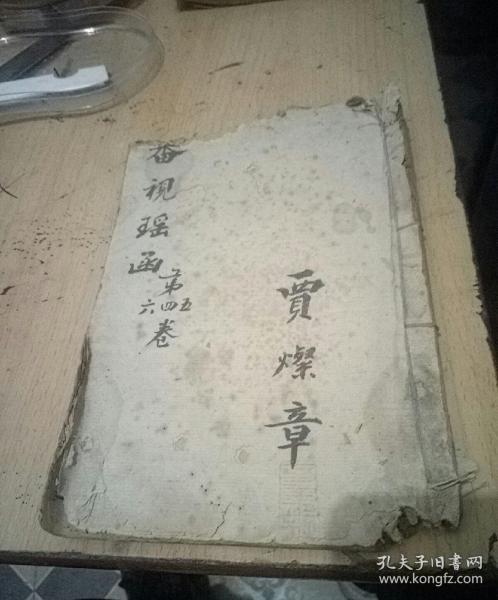 番视瑶函
第四五六卷
贾燦章
孔夫子旧书网
www.kongfz.com